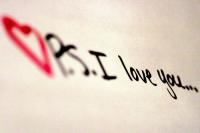 P.S. I love you...